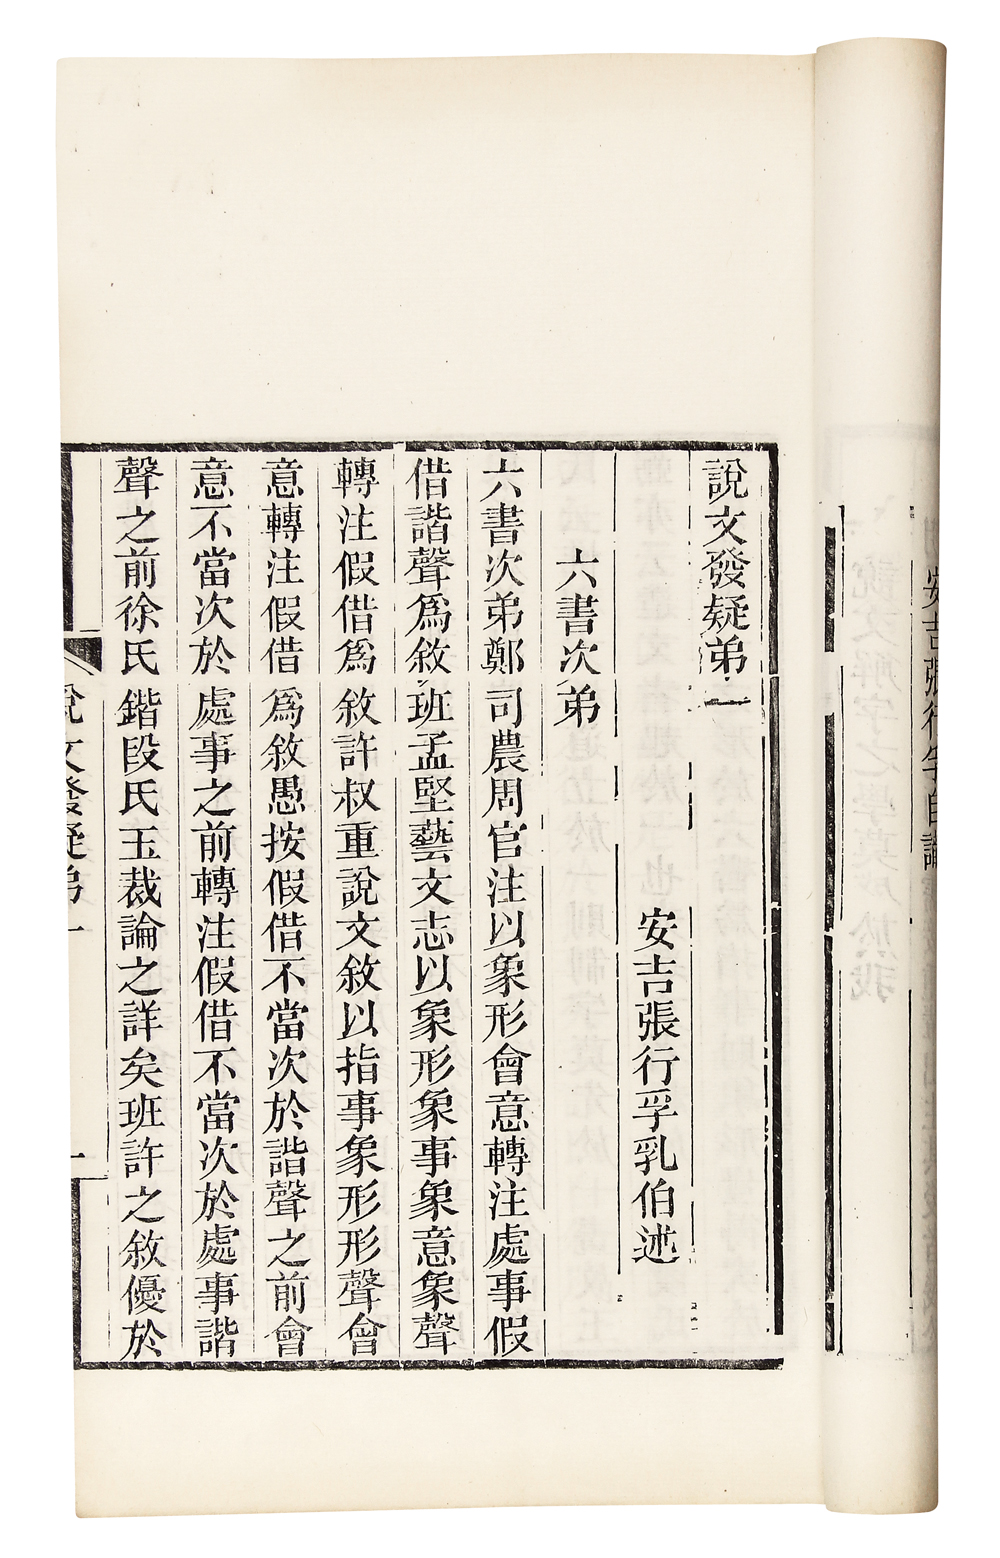 安吉張行孚自識
說文發疑弟一
安吉張行孚乳伯述
六書次弟
六書次弟鄭司農周官注以象形會意轉注處事假
借諧聲爲敘班孟堅藝文志以象形象事象意象聲
轉注假借爲敘許叔重說文敘以指事象形形聲會
意轉注假借爲敘愚按假借不當次於諧聲之前會
意不當次於處事之前轉注假借不當次於處事諧
聲之前徐氏鍇段氏玉裁論之詳矣班許之敘優於
說文發疑弟一
一